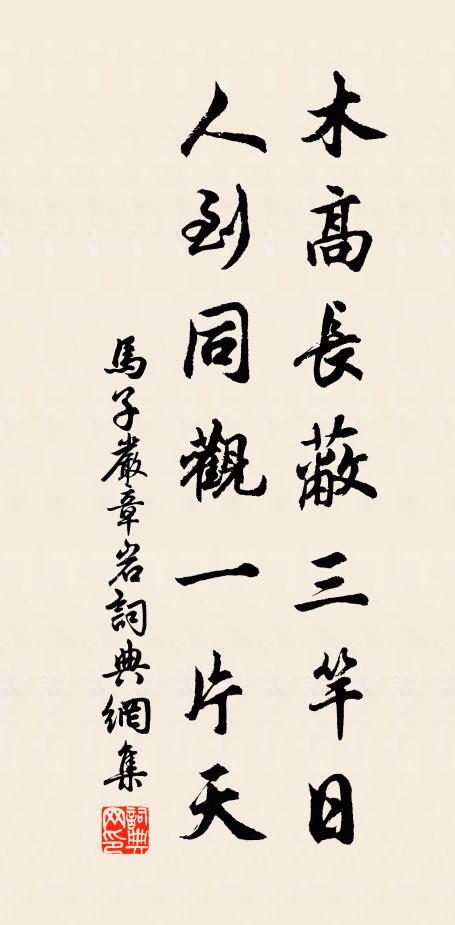 木高長蔽三竿日
人到同觀一片天
馬子嚴章岩詞典網集
詞典網印